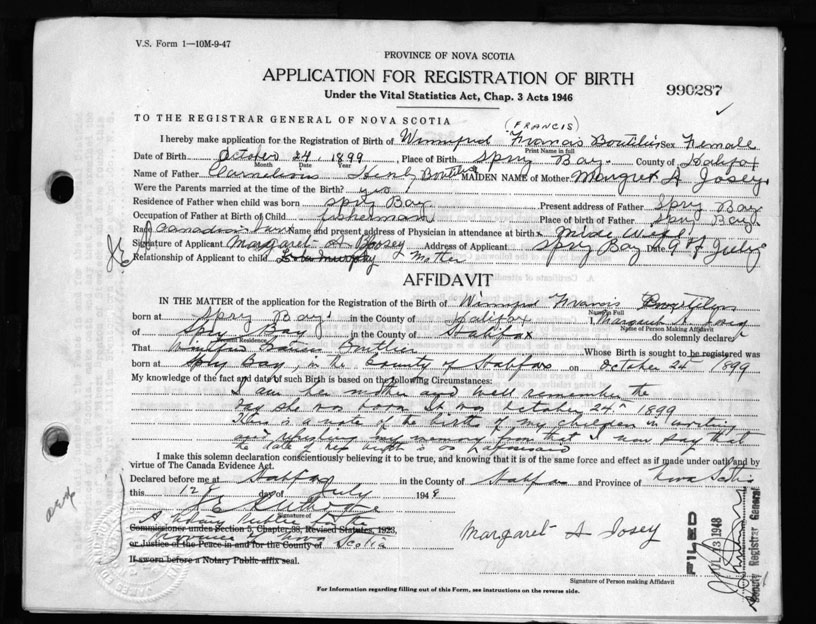 V.S. Form 1—10M-9-47
PROVINCE OF NOVA SCOTIA
APPLICATION FOR REGISTRATION OF BIRTH
990287
Under the Vital Statistics Act, Chap. 3 Acts 1946
TO THE REGISTRAR GENERAL OF NOVA SCOTIA
(FRANCIS)
I hereby make application for the Registration of Birth of Winnifred Francis Boutilier Sex Female
Print Name in full
Date of Birth October 24, 1899 Place of Birth Spry Bay County of Halifax
Month Day Year
Name of Father Henly Boutilier MAIDEN NAME of Mother Margret A Josey
Were the Parents married at the time of Birth? yes
Residence of Father when child was born Spry Bay Present address of Father Spry Bay
Occupation of Father at Birth of Child fisherman Place of birth of Father Spry Bay
Name and present address of Physician in attendance at birth Mide Wife
Signature of Applicant Margaret A Josey Address of Applicant Spry Bay Date 9 of July
Relationship of Applicant to child Mother
AFFIDAVIT
IN THE MATTER of the application for the Registration of the Birth of Winnifred Francis
Name in Full
born at Spry Bay in the County of Halifax I, Margaret A Josey
Name of Person Making Affidavit
of Spry Bay in the County of Halifax do solemnly declare
Present Residence
That Winnifred Francis Boutilier Whose Birth is sought to be registered was
born at Spry Bay, in the County of Halifax on October 24 1899
My knowledge of the fact and date of such Birth is based on the following Circumstances:
I am her mother and well remember the
day she was born. It was October 24th 1899
There is a note of the births of my children in writing
and refreshing my memory from that I now say that
the date of her birth is as aforesaid
I make this solemn declaration conscientiously believing it to be true, and knowing that it is of the same force and effect as if made under oath and by
virtue of The Canada Evidence Act.
Declared before me at Halifax in the County of Halifax and Province of Nova Scotia
this 12 day of July 1948
Signature of
A Notary Public in the
Commissioner under Section 5, Chapter 38, Revised Statutes, 1923,
Province of Nova Scotia
or Justice of the Peace in and for the County of
If sworn before a Notary Public affix seal.
Margaret A Josey
Signature of Person making Affidavit
FILED
JUL 13 1948
Deputy Registrar General
For Information regarding filling out of this Form, see instructions on the reverse side.